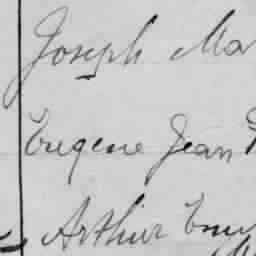 Joseph Ma
Eugene Jean
Arthur Em